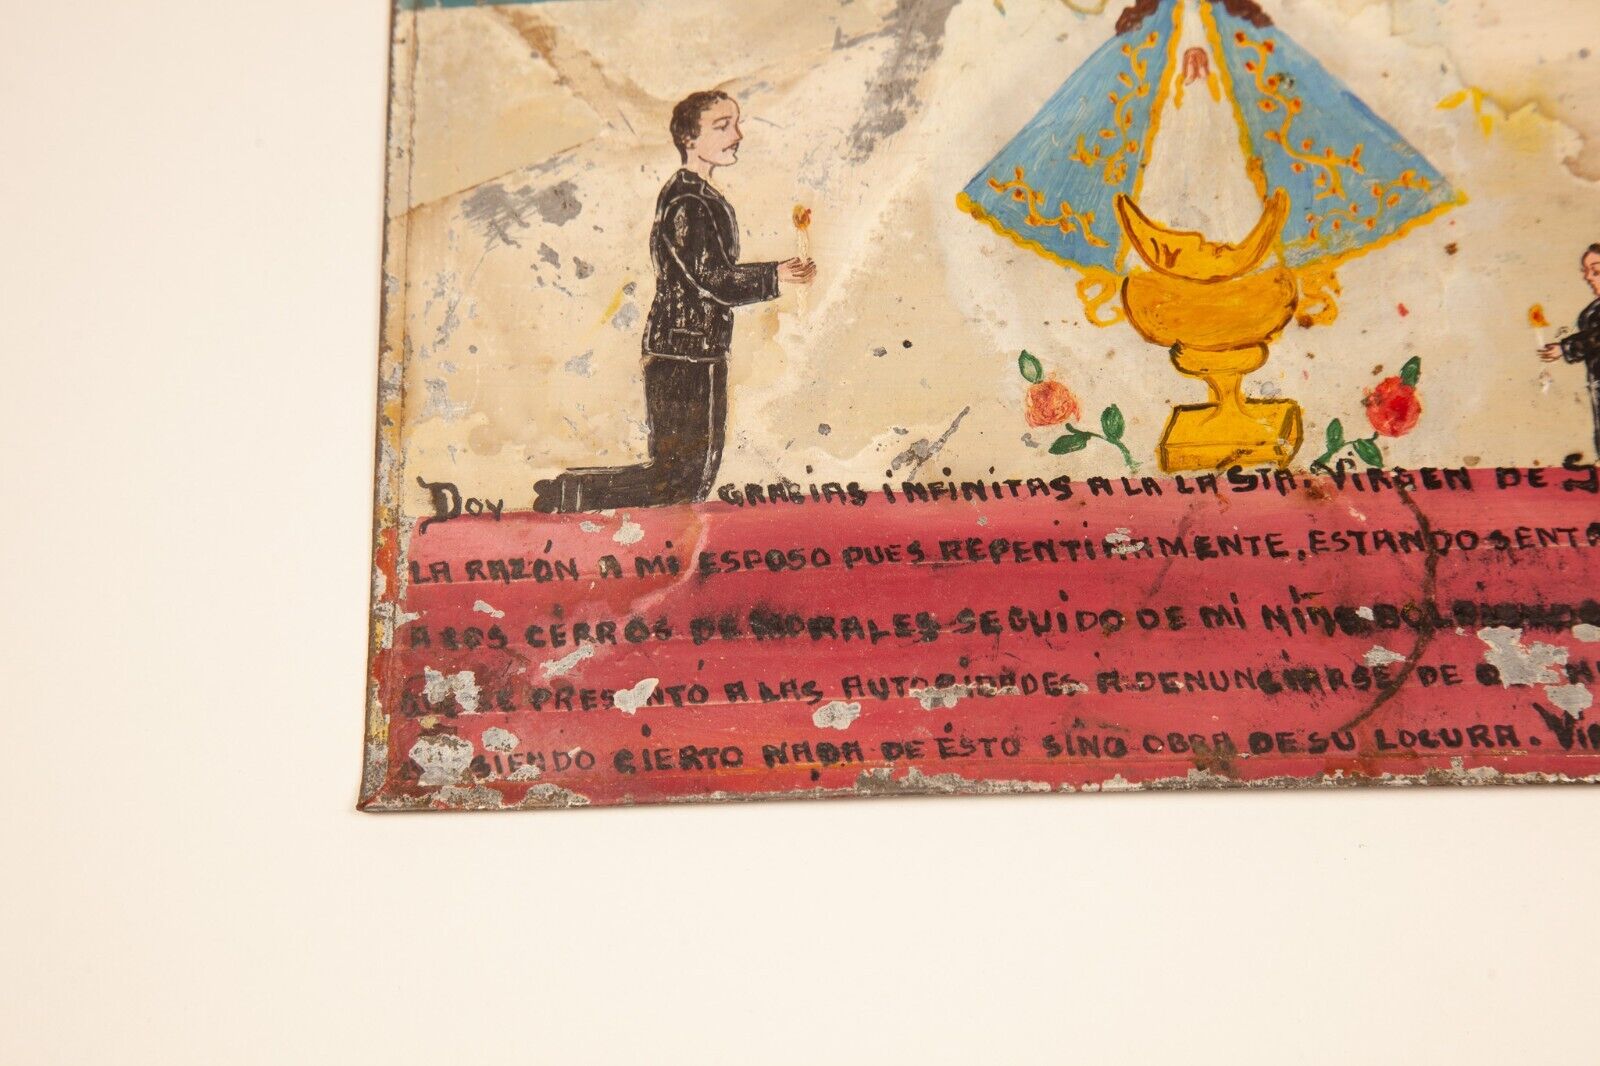 Doy GRACIAS iNFINITAS A LA LA STA. ViRGEN DE S
LA RAZÓN A Mi ESPOSO PUES REPENTINAMENTE, ESTANDO SENTA
A LOS CERROS DE MORALES SEGUIDO DE Mi NiÑO
SE PRESENTÓ A LAS AUTORIDADES A DENUNCIARSE DE
SIENDO CIERTO NADA DE ÉSTO SINO OBRA DE SU LOCURA. ViR